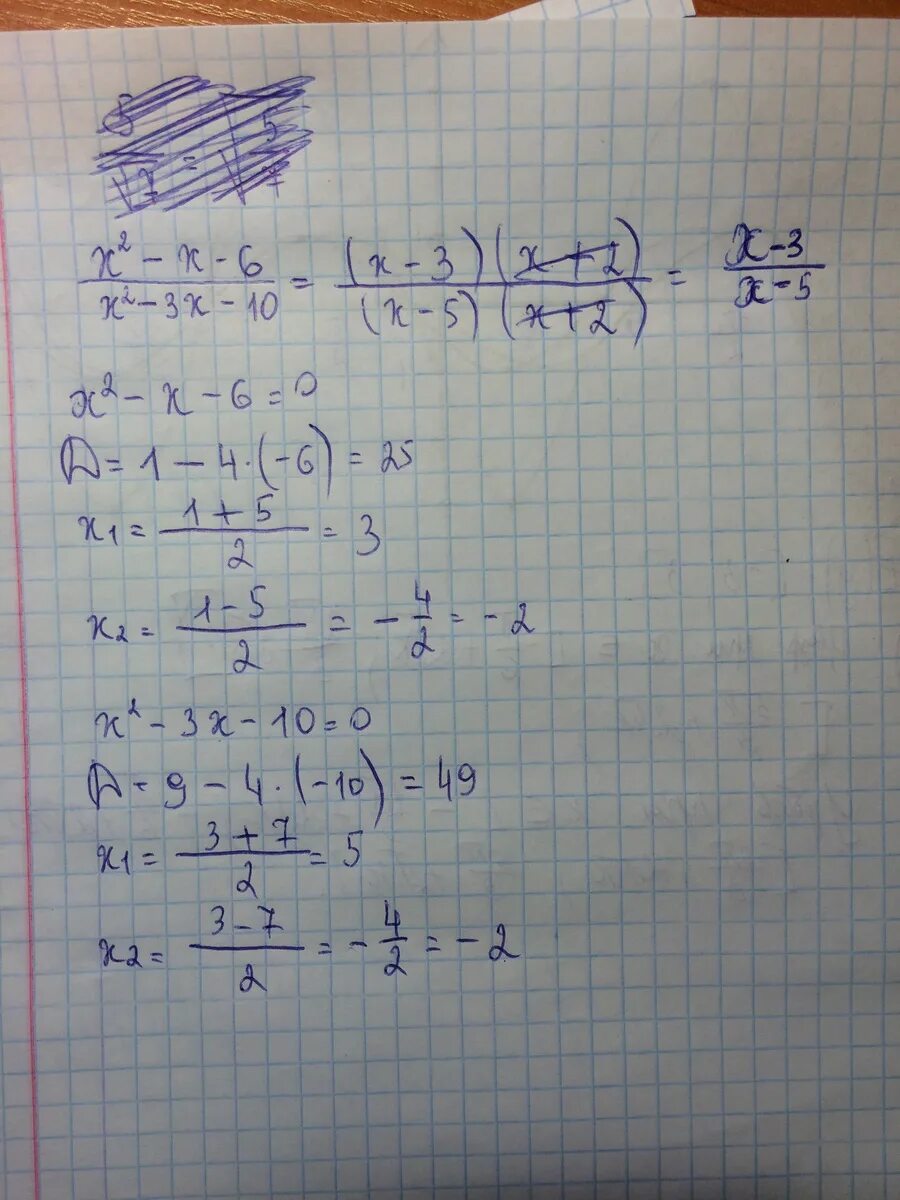 x² - x - 6 / x² - 3x - 10 = (x - 3)(x + 2) / (x - 5)(x + 2) = x - 3 / x - 5
x² - x - 6 = 0
D = 1 - 4·(-6) = 25
x1 = 1 + 5 / 2 = 3
x2 = 1 - 5 / 2 = - 4/2 = - 2
x² - 3x - 10 = 0
D = 9 - 4·(-10) = 49
x1 = 3 + 7 / 2 = 5
x2 = 3 - 7 / 2 = - 4/2 = - 2